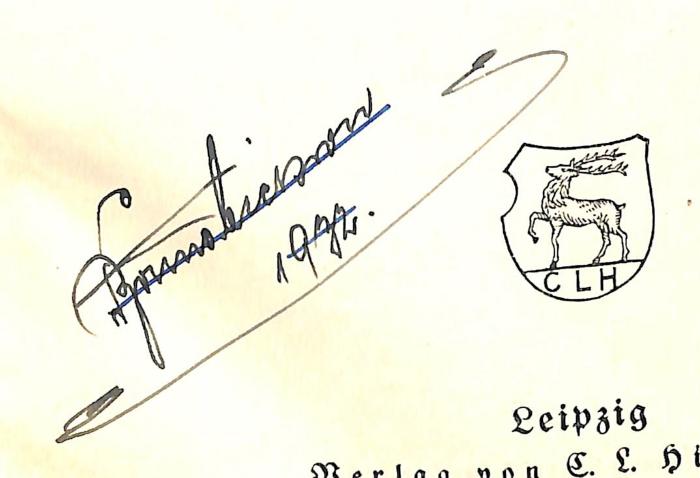 1972.
CLH
Leipzig
Verlag von C. L. Hi